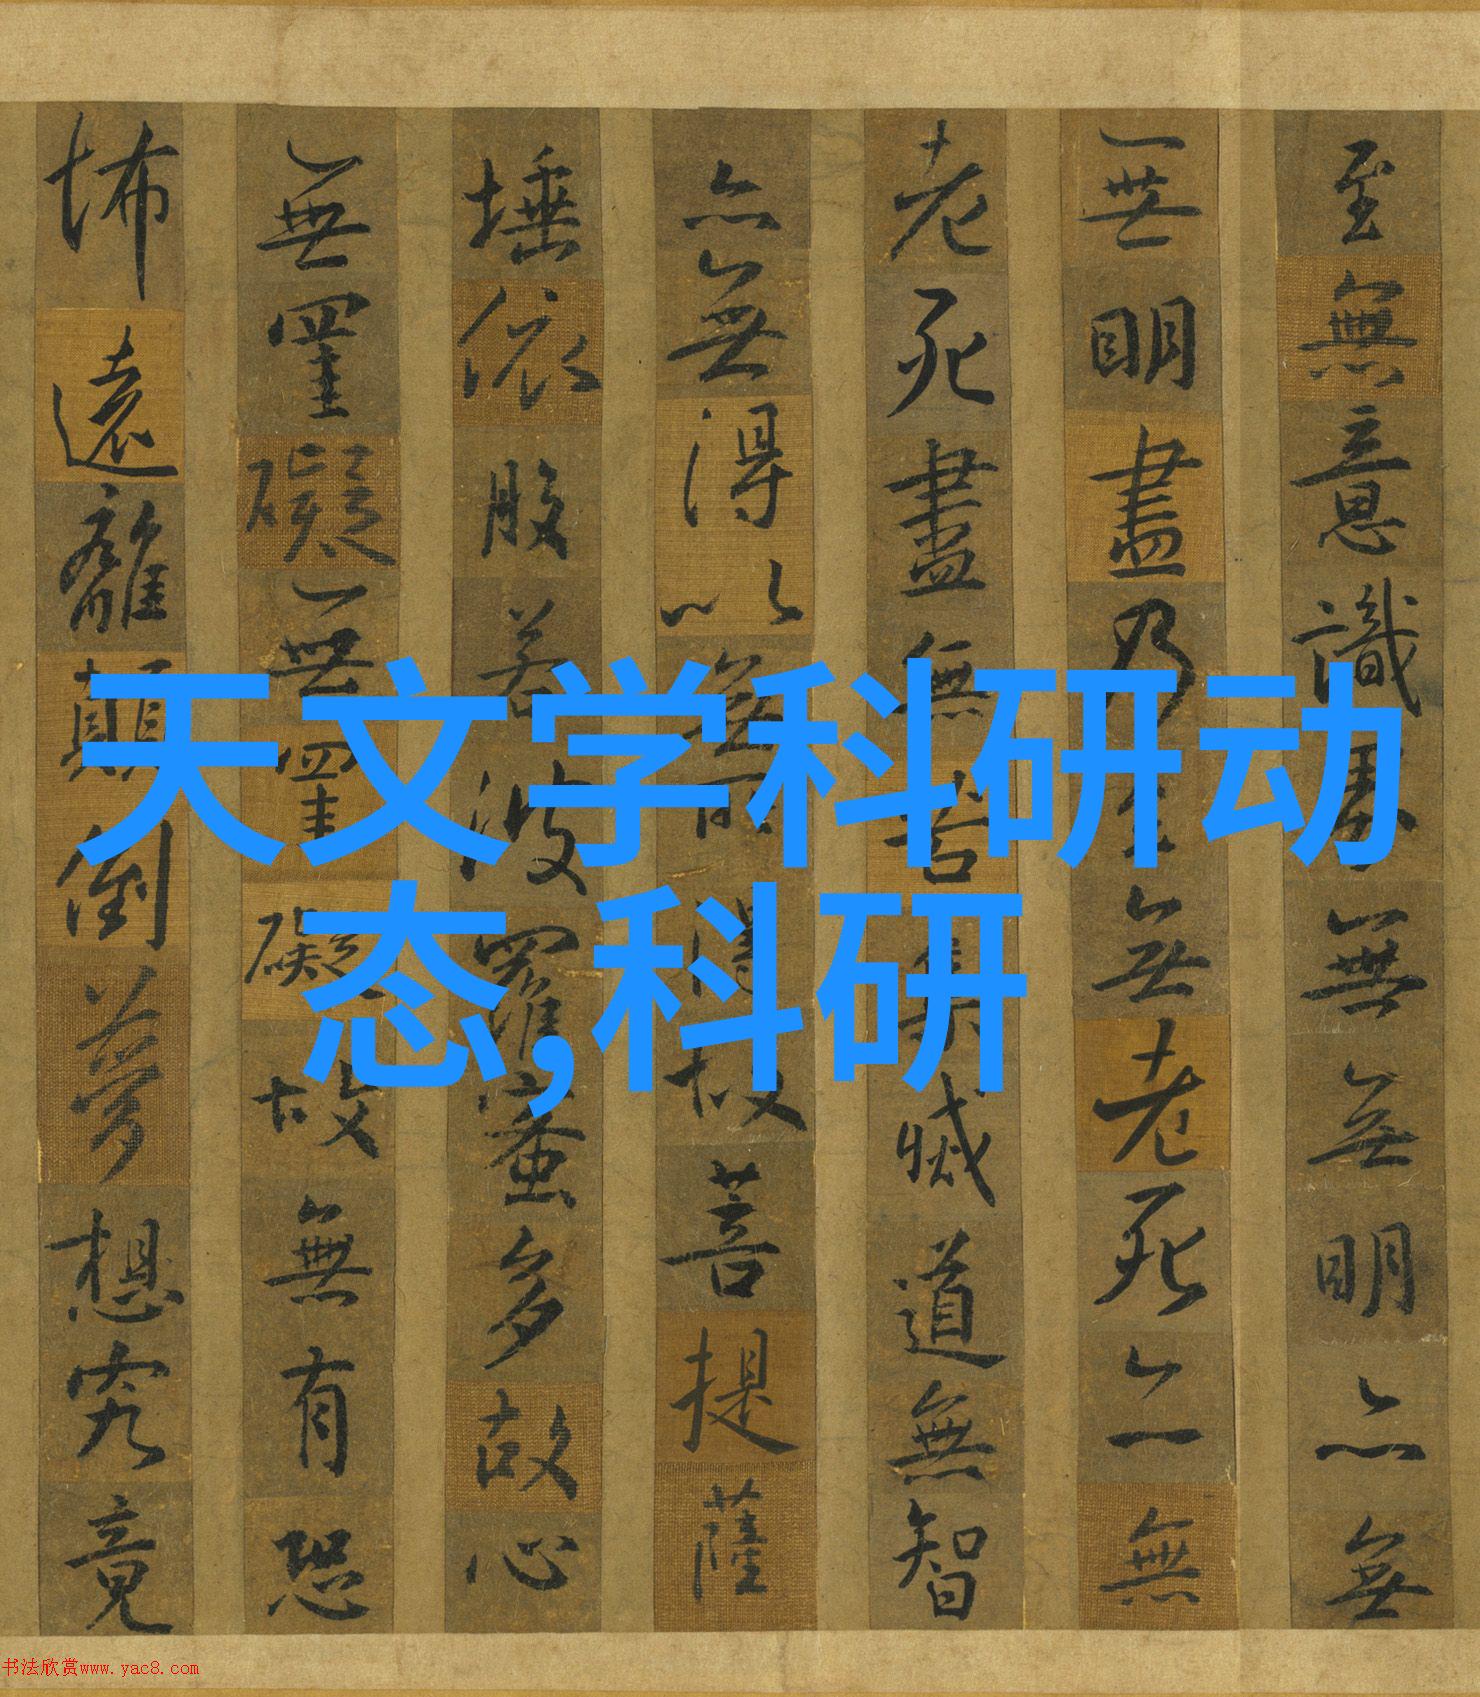 至無意識界無無明亦無
無明盡乃至無老死亦無
老死盡無苦集滅道無智
亦無得以無所得故菩提薩
埵依般若波羅蜜多故心
無罣礙無罣礙故無有恐
怖遠離顛倒夢想究竟
天文学科研动
态,科研
书法欣赏www.yac8.com